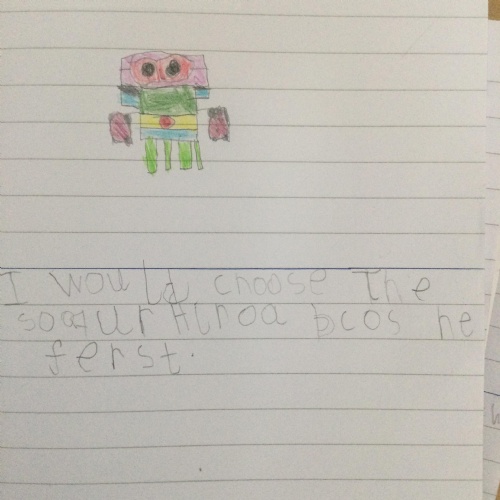 I would choose The
hiroa bcos he
ferst.